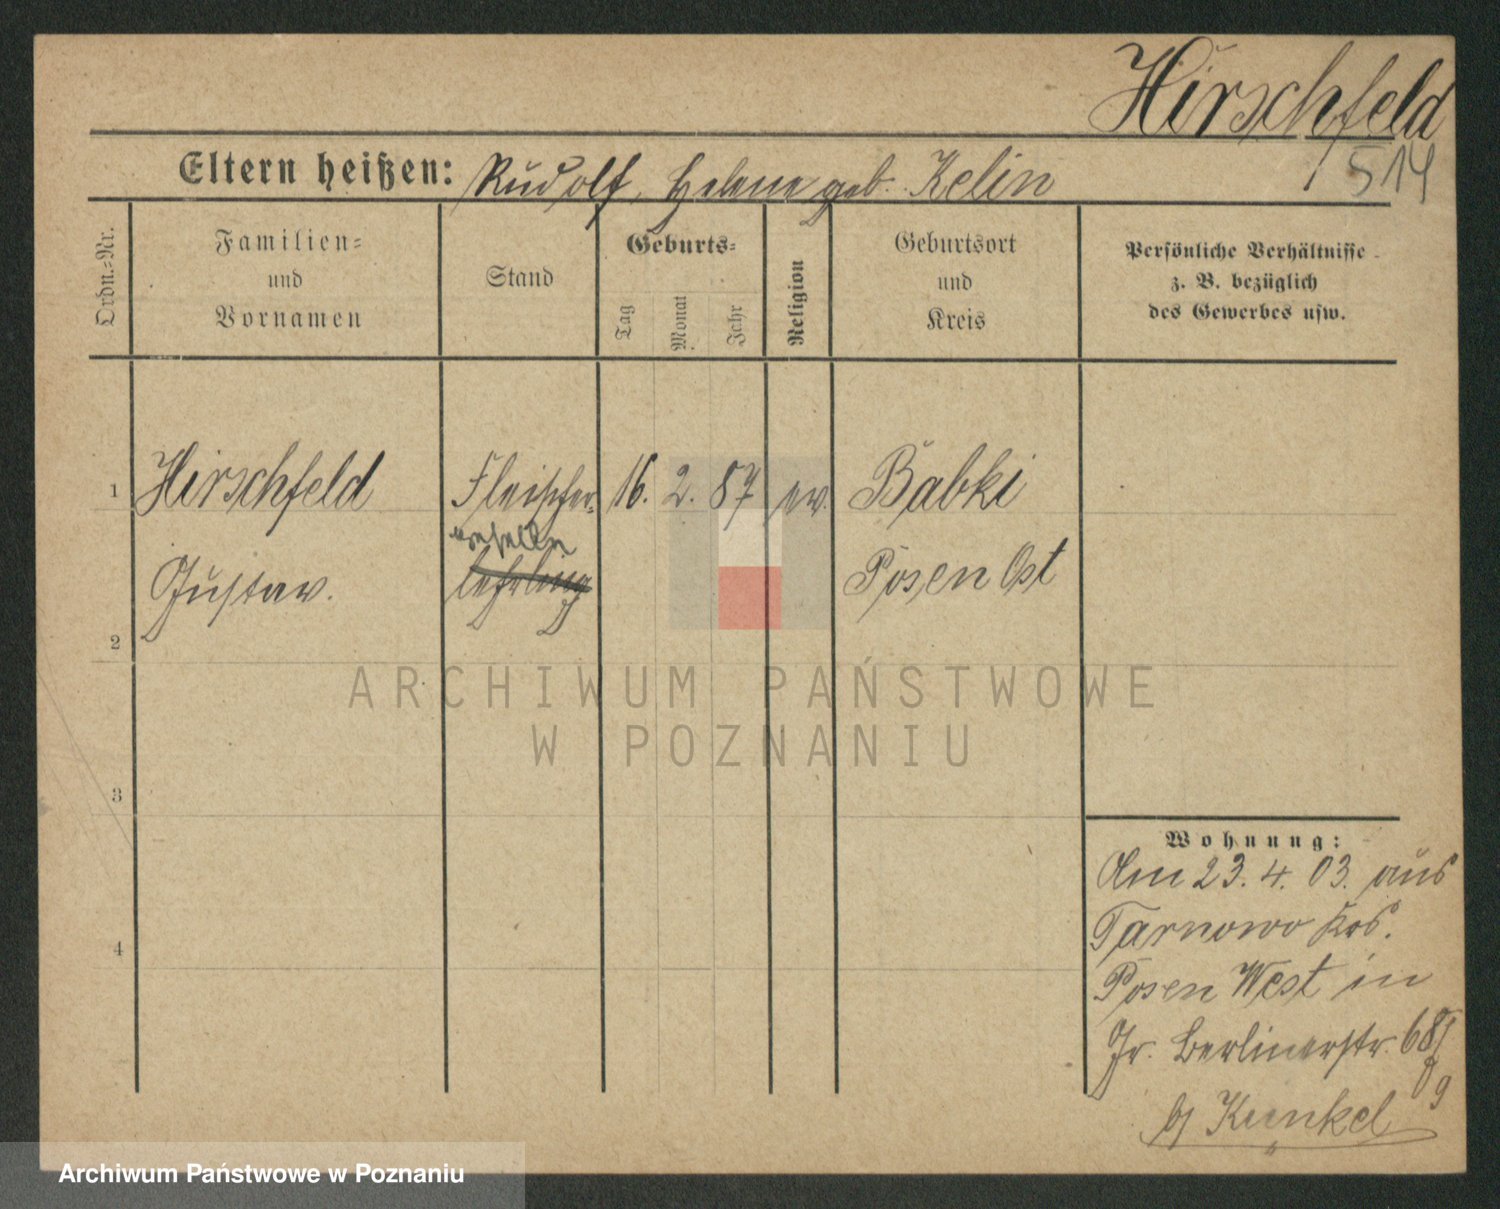 Hirschfeld
514
Eltern heißen: Rudolf, Helene geb. Kelin
Ordn.-Nr.
Familien-
und
Vornamen
Stand
Geburts-
Tag
Monat
Jahr
Religion
Geburtsort
und
Kreis
Persönliche Verhältnisse
z. B. bezüglich
des Gewerbes usw.
1 Hirschfeld Fleischer- 16. 2. 87 ev. Babki
geselle
Gustav. lehrling Posen Ost
2
ARCHIWUM PAŃSTWOWE
W POZNANIU
3
Wohnung:
Am 23. 4. 03. aus
Tarnowo Krs.
4
Posen West in
Jr. Berlinerstr. 68/
69
b/ Kunkel
Archiwum Państwowe w Poznaniu